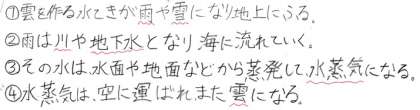 ①雲を作る水てきが雨や雪になり地上にふる。
②雨は川や地下水となり海に流れていく。
③その水は、水面や地面などから蒸発して、水蒸気になる。
④水蒸気は、空に運ばれ、また雲になる。